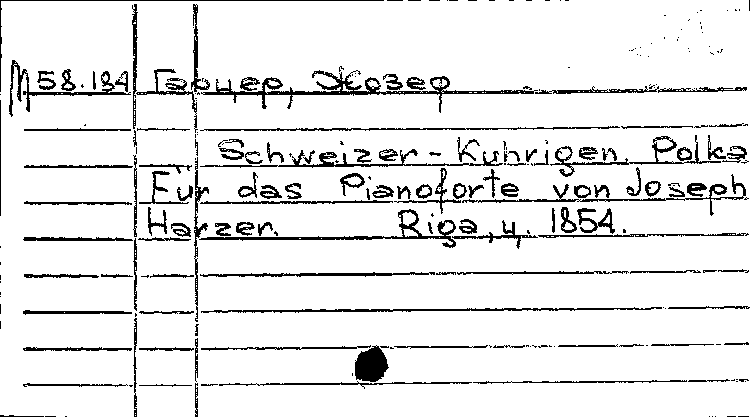 М 58.184 Гарцер, Жозеф
Schweizer-Kuhrigen. Polka
Für das Pianoforte von Joseph
Harzer. Riga, ц. 1854.